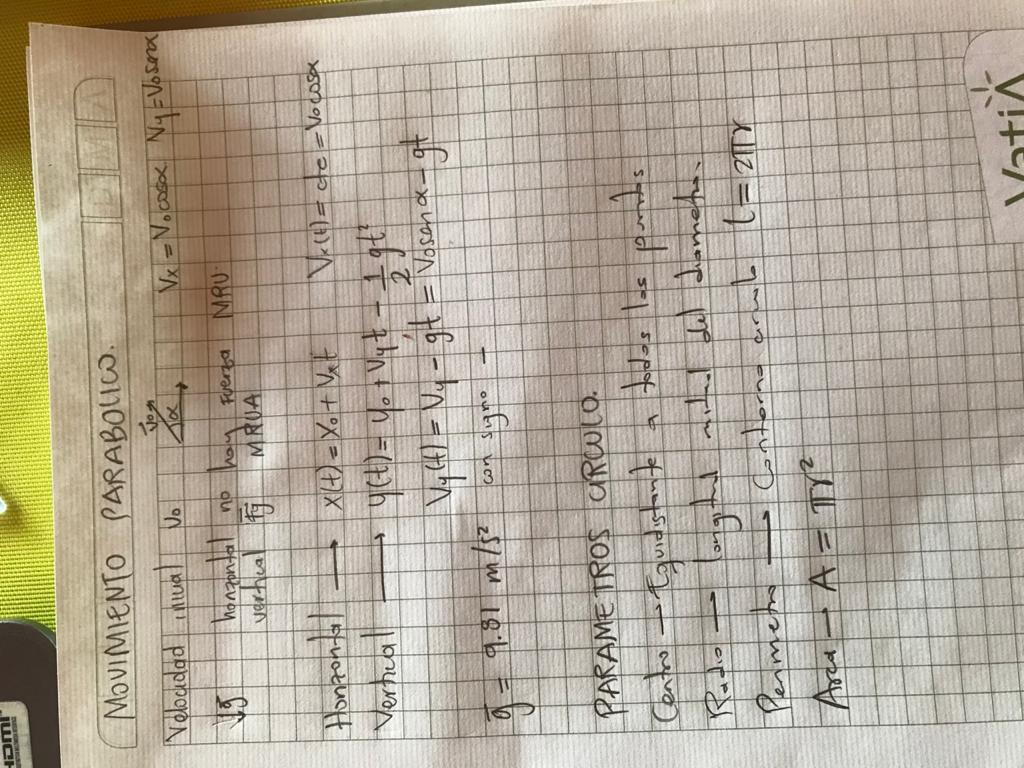 MOVIMIENTO PARABOLICO.
D M A
Velocidad inicial Vo Vo α Vx = Vo cosα Vy = Vo senα
↓g horizontal no hay fuerza MRU
vertical Fg MRUA
Horizontal → x(t) = xo + Vxt Vx(t) = cte = Vo cosα
Vertical → y(t) = yo + Vyt - 1/2 gt²
Vy(t) = Vy - gt = Vo senα - gt
g = 9.81 m/s² con signo -
PARAMETROS CIRCULO.
Centro → Equidistante a todos los puntos
Radio → longitud mitad del diametro.
Perimetro → Contorno circulo l = 2πr
Area → A = πr²
VatiA
HDMI